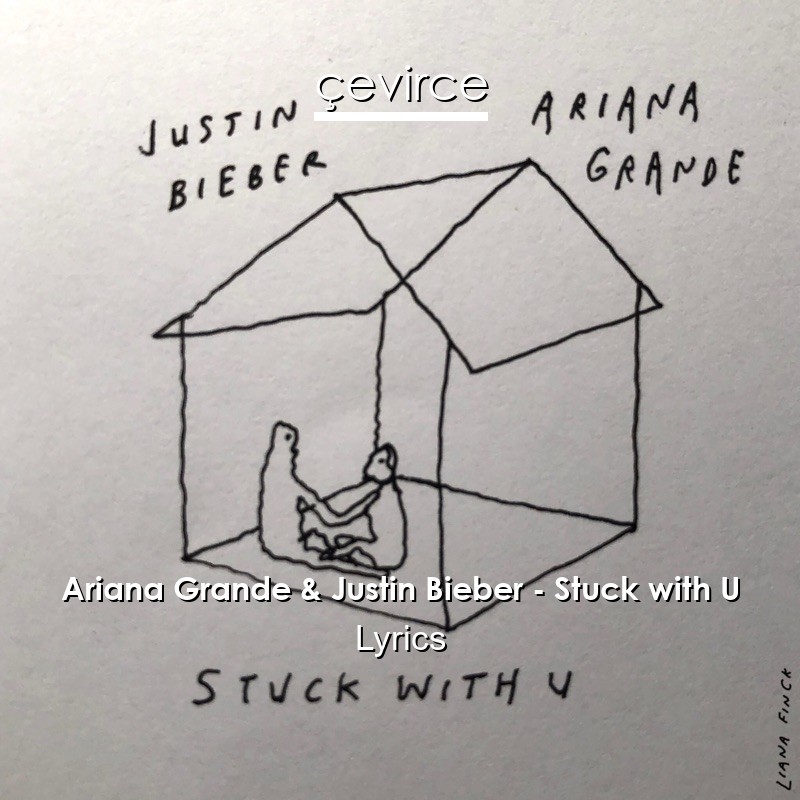 çevirce
JUSTIN
BIEBER
ARIANA
GRANDE
Ariana Grande & Justin Bieber - Stuck with U
Lyrics
STUCK WITH U
LIANA FINCK